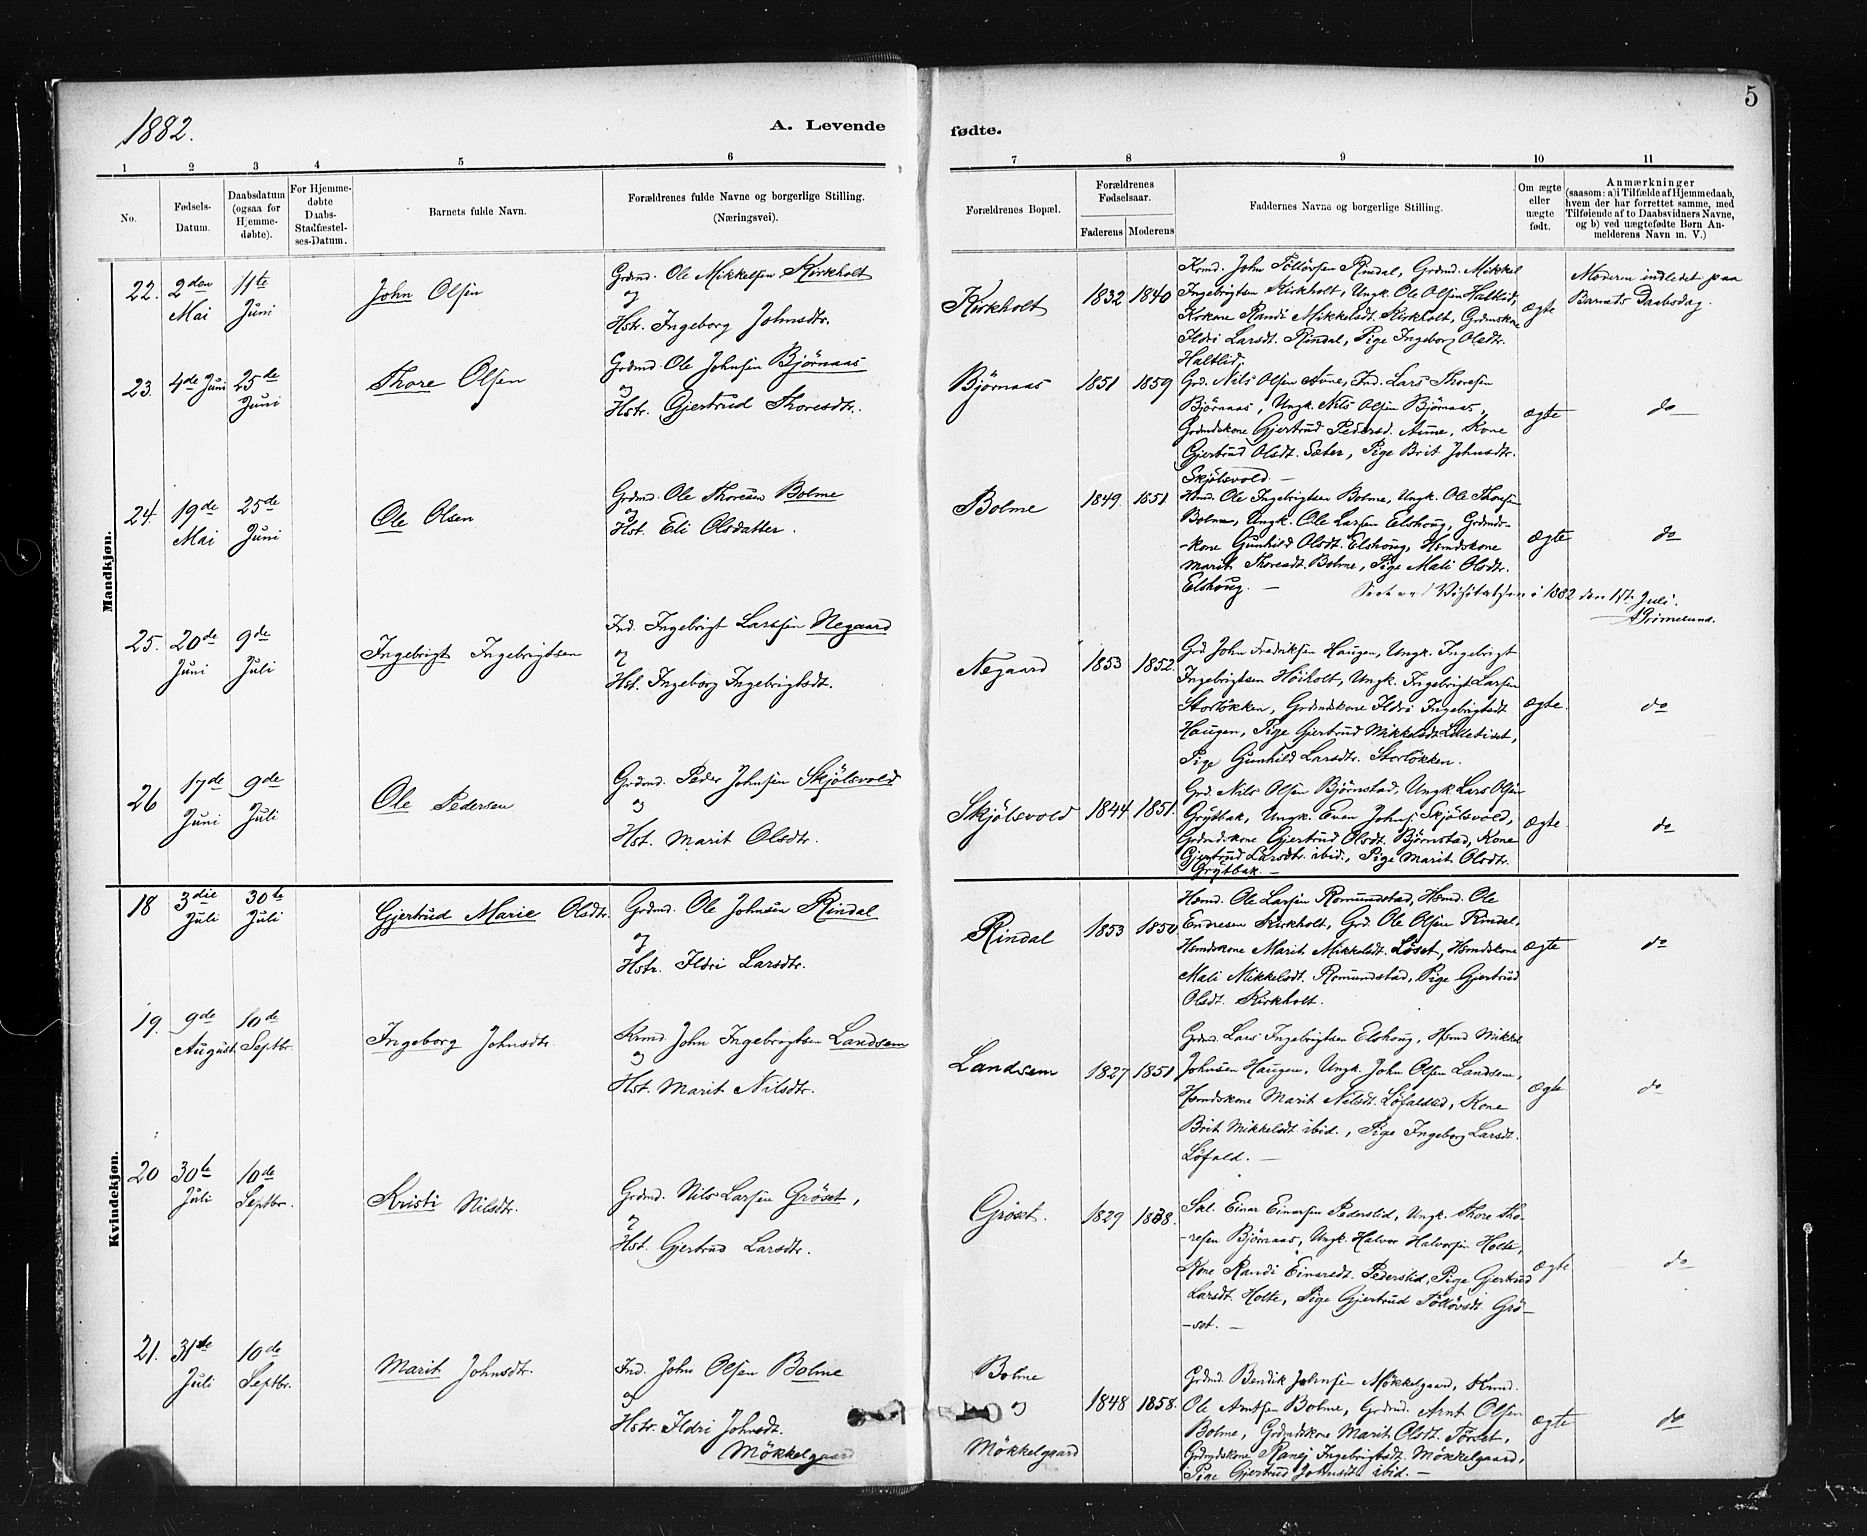 1882.
A. Levende
fødte.
5
1 2 3 4 5 6 7 8 9 10 11
No.
Fødsels-
Datum.
Daabsdatum
(ogsaa for
Hjemme-
døbte).
For Hjemme-
døbte
Daabs-
Stadfæstel-
ses-Datum.
Barnets fulde Navn.
Forældrenes fulde Navne og borgerlige Stilling.
(Næringsvei).
Forældrenes Bopæl.
Forældrenes
Fødselsaar.
Faderens Moderens
Faddernes Navne og borgerlige Stilling.
Om ægte
eller
uægte
født.
Anmærkninger
(saasom: a) i Tilfælde af Hjemmedaab,
hvem der har forrettet samme, med
Tilføiende af to Daabsvidners Navne,
og b) ved uægtefødte Børn An-
melderens Navn m. V.)
Mandkjøn.
22. 2den Mai
11te Juni
John Olsen
Grdmd. Ole Mikkelsen Kirkholt
og
Hstr. Ingeborg Johnsdtr.
Kirkholt
1832 1840
Krmd. John Tøllövsen Rindal, Grdmd. Mikkel
Ingebrigtsen Kirkholt, Ungk. Ole Olsen Haltlid,
Krkone Randi Mikkelsdt. Kirkholt, Grdmskone
Ildri Larsdt. Rindal, Pige Ingeborg Olsdtr.
Haltlid.
ægte
Moderen indledet paa
Barnets Daabsdag.
23. 4de Juni
25de Juni
Thore Olsen
Grdmd. Ole Johnsen Bjørnaas
og
Hstr. Gjertrud Thoresdtr.
Bjørnaas
1851 1859
Grd. Nils Olsen Aune, Ind. Lars Thoresen
Bjørnaas, Ungk. Nils Olsen Bjørnaas,
Grdmdskone Gjertrud Pedersd. Aune, Kone
Gjertrud Olsdt. Sæter, Pige Brit Johnsdtr.
Skjølsvold. —
ægte
do
24. 19de Mai
25de Juni
Ole Olsen
Grdmd. Ole Thoresen Bolme
og
Hst. Eli Olsdatter.
Bolme
1849. 1851
Hmd. Ole Ingebrigtsen Bolme, Ungk. Ole Thoresen
Bolme, Ungk. Ole Larsen Elshoug, Grdmds-
-kone Gunhild Olsdt. Elshoug, Hsmdskone
Marit Thoresdt. Bolme, Pige Mali Olsdtr.
Elshoug. —
ægte
do
Visitatsen i 1882 den 17de Juli.
25. 20de Juni
9de Juli
Ingebrigt Ingebrigtsen
Ind. Ingebrigt Larssen Negaard
og
Hst. Ingeborg Ingebrigtsdt.
Negaard
1853 1852.
Grd John Fredriksen Haugen, Ungk. Ingebrigt
Ingebrigtsen Høiholt, Ungk. Ingebrigt Larsen
Storløkken, Grdmdskone Ildri Ingebrigtsdt
Haugen, Pige Gjertrud Mikkelsdt.
Pige Gunhild Larsdtr. Storløkken.
ægte.
do
26 17de Juni
9de Juli
Ole Pedersen
Grdmd. Peder Johnsen Skjølsvold
og
Hst. Marit Olsdtr.
Skjølsvold
1844 1851.
Grd. Nils Olsen Bjørnstad, Ungk Lars Olsen
Grytbak, Ungk. Even Johns. Skjølsvold,
Grdmd.kone Gjertrud Olsdt. Bjørnstad, Kone
Gjertrud Larsdtr. ibid., Pige Marit Olsdtr.
Grytbak. —
ægte
do
Kvindekjøn.
18 3die Juli
30te Juli
Gjertrud Marie Olsdtr.
Grdmd. Ole Johnsen Rindal
og
Hstr. Ildri Larsdtr.
Rindal
1853 1850
Hsmd. Ole Larsen Romundstad, Hsmd. Ole
Endresen Kirkholt, Grd. Ole Olsen Rindal,
Hsmdskone Marit Mikkelsdt. Løset, Hsmdskone
Mali Mikkelsdt. Romundstad, Pige Gjertrud
Olsdt. Kirkholt.
ægte
do
19. 9de August
10de Septbr.
Ingeborg Johnsdtr
Krmd John Ingebrigtsen Landsem
og
Hst. Marit Nilsdtr.
Landsem
1827 1851
Grdmd. Lars Ingebrigtsen Elshoug, Hsmd Mikkel
Johnsen Haugen, Ungk. John Olsen Landsem,
Hsmdskone Marit Nilsdt. Løfaldlid, Kone
Brit Mikkelsdt ibid., Pige Ingeborg Larsdt.
Løfald. —
ægte
do
20 30te Juli
10de Septbr.
Kristi Nilsdtr.
Grdmd. Nils Larsen Grøset,
og
Hst. Gjertrud Larsdtr.
Grøset.
1829 1838.
Skl. Einar Einarsen Pederslid, Ungk. Thore Tho-
-resen Bjørnaas, Ungk. Halvor Halvorsen Holte,
Kone Randi Einarsdt. Pederslid, Pige Gjertrud
Larsdt. Holte, Pige Gjertrud Tøllövsdt. Grø-
-set. —
ægte
do
21. 31te Juli
10de Septbr.
Marit Johnsdtr.
Ind. John Olsen Bolme
og
Hstr. Ildri Johnsdt.
Møkkelgaard
Bolme
og
Møkkelgaard
1848 1858.
Grdmd. Bendik Johnsen Møkkelgaard, Krmd.
Ole Arntsen Bolme, Grdmd. Arnt Olsen
Bolme, Grdmdskone Marit Olsdt. Tørset,
Grdmdskone Ranej Ingebrigtsdt. Møkkelgaard,
Pige Gjertrud Johnsdt ibid. —
ægte
do